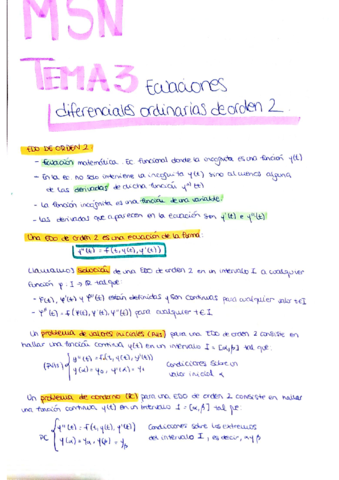 MSN
TEMA 3 Ecuaciones
diferenciales ordinarias de orden 2.
EDO DE ORDEN 2
- Ecuación matemática. Ec funcional donde la incognita es una función y(t)
- En la ec no solo interviene la incognita y(t) sino al menos alguna
de las derivadas de dicha función yⁿ(t)
- La función incognita es una función de una variable
- Las derivadas que aparecen en la ecuación son y'(t) e y''(t)
Una EDO de orden 2 es una ecuación de la forma:
y''(t) = f(t, y(t), y'(t))
Llamamos solución de una EDO de orden 2 en un intervalo I a cualquier
función φ: I → ℝ tal que:
- φ(t), φ'(t) y φ''(t) están definidas y son continuas para cualquier valor t∈I
para cualquier t∈I.
Un problema de valores iniciales (PVI) para una EDO de orden 2 consiste en
hallar una función continua y(t) en un intervalo I = [α,β] tal que:
(PVI) { y''(t) = f(t, y(t), y'(t)) Condiciones sobre un
y(α) = y₀, y'(α) = y₁ valor inicial α
Un problema de contorno (PC) para una EDO de orden 2 consiste en hallar
una función continua y(t) en un intervalo I = [α,β] tal que:
PC { y''(t) = f(t, y(t), y'(t)) Condiciones sobre los extremos
y(α) = yα, y(β) = yβ del intervalo I, es decir, α y β